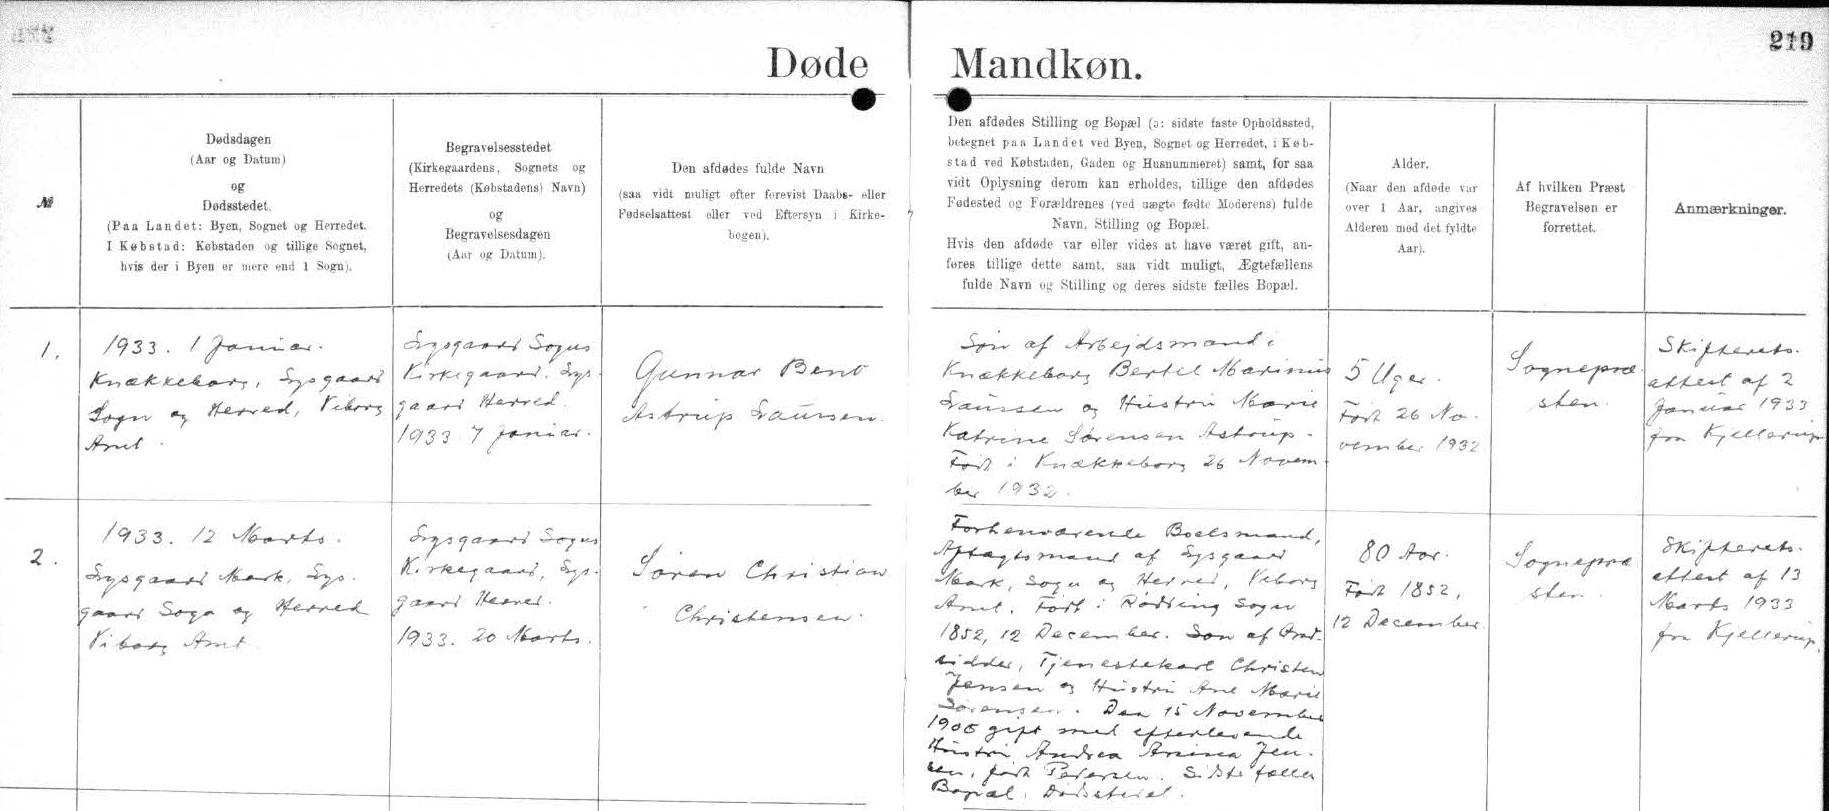 219
Døde Mandkøn.
№
Dødsdagen
(Aar og Datum)
og
Dødsstedet.
(Paa Landet: Byen, Sognet og Herredet.
I Købstad: Købstaden og tillige Sognet,
hvis der i Byen er mere end 1 Sogn).
Begravelsesstedet
(Kirkegaardens, Sognets og
Herredets (Købstadens) Navn)
og
Begravelsesdagen
(Aar og Datum).
Den afdødes fulde Navn
(saa vidt muligt efter forevist Daabs- eller
Fødselsattest eller ved Eftersyn i Kirke-
bogen).
Den afdødes Stilling og Bopæl (ɔ: sidste faste Opholdssted,
betegnet paa Landet ved Byen, Sognet og Herredet, i Køb-
stad ved Købstaden, Gaden og Husnummeret) samt, for saa
vidt Oplysning derom kan erholdes, tillige den afdødes
Fødested og Forældrenes (ved uægte fødte Moderens) fulde
Navn, Stilling og Bopæl.
Hvis den afdøde var eller vides at have været gift, an-
føres tillige dette samt, saa vidt muligt, Ægtefællens
fulde Navn og Stilling og deres sidste fælles Bopæl.
Alder.
(Naar den afdøde var
over 1 Aar, angives
Alderen med det fyldte
Aar).
Af hvilken Præst
Begravelsen er
forrettet.
Anmærkninger.
1.
1933. 1 Januar.
Knækkeborg, Lysgaard
Sogn og Herred, Viborg
Amt.
Lysgaard Sogns
Kirkegaard. Lys-
gaard Herred.
1933 7 Januar.
Gunnar Bent
Astrup Laursen.
Søn af Arbejdsmand i
Knækkeborg Bertel Marinus
Laursen og Hustru Marie
Katrine Sørensen Astrup.
Født i Knækkeborg 26 Novem-
ber 1932.
5 Uger.
Født 26 No-
vember 1932
Sognepræ-
sten.
Skifterets-
attest af 2
Januar 1933
fra Kjellerup
2.
1933. 12 Marts.
Lysgaard Mark, Lys-
gaard Sogn og Herred
Viborg Amt.
Lysgaard Sogns
Kirkegaard, Lys-
gaard Herred.
1933. 20 Marts.
Søren Christian
Christensen.
Forhenværende Boelsmand,
Aftægtsmand af Lysgaard
Mark, Sogn og Herred, Viborg
Amt. Født i Rødding Sogn
1852, 12 December. Søn af Ind-
sidder, Tjenestekarl Christen
Jensen og Hustru Ane Marie
Sørensen. Den 15 November
1906 gift med efterlevende
Hustru Andrea Jen-
sen, født Pedersen. Sidste fælles
Bopæl: Dødsstedet.
80 Aar.
Født 1852,
12 December
Sognepræ-
sten.
Skifterets-
attest af 13
Marts 1933
fra Kjellerup.